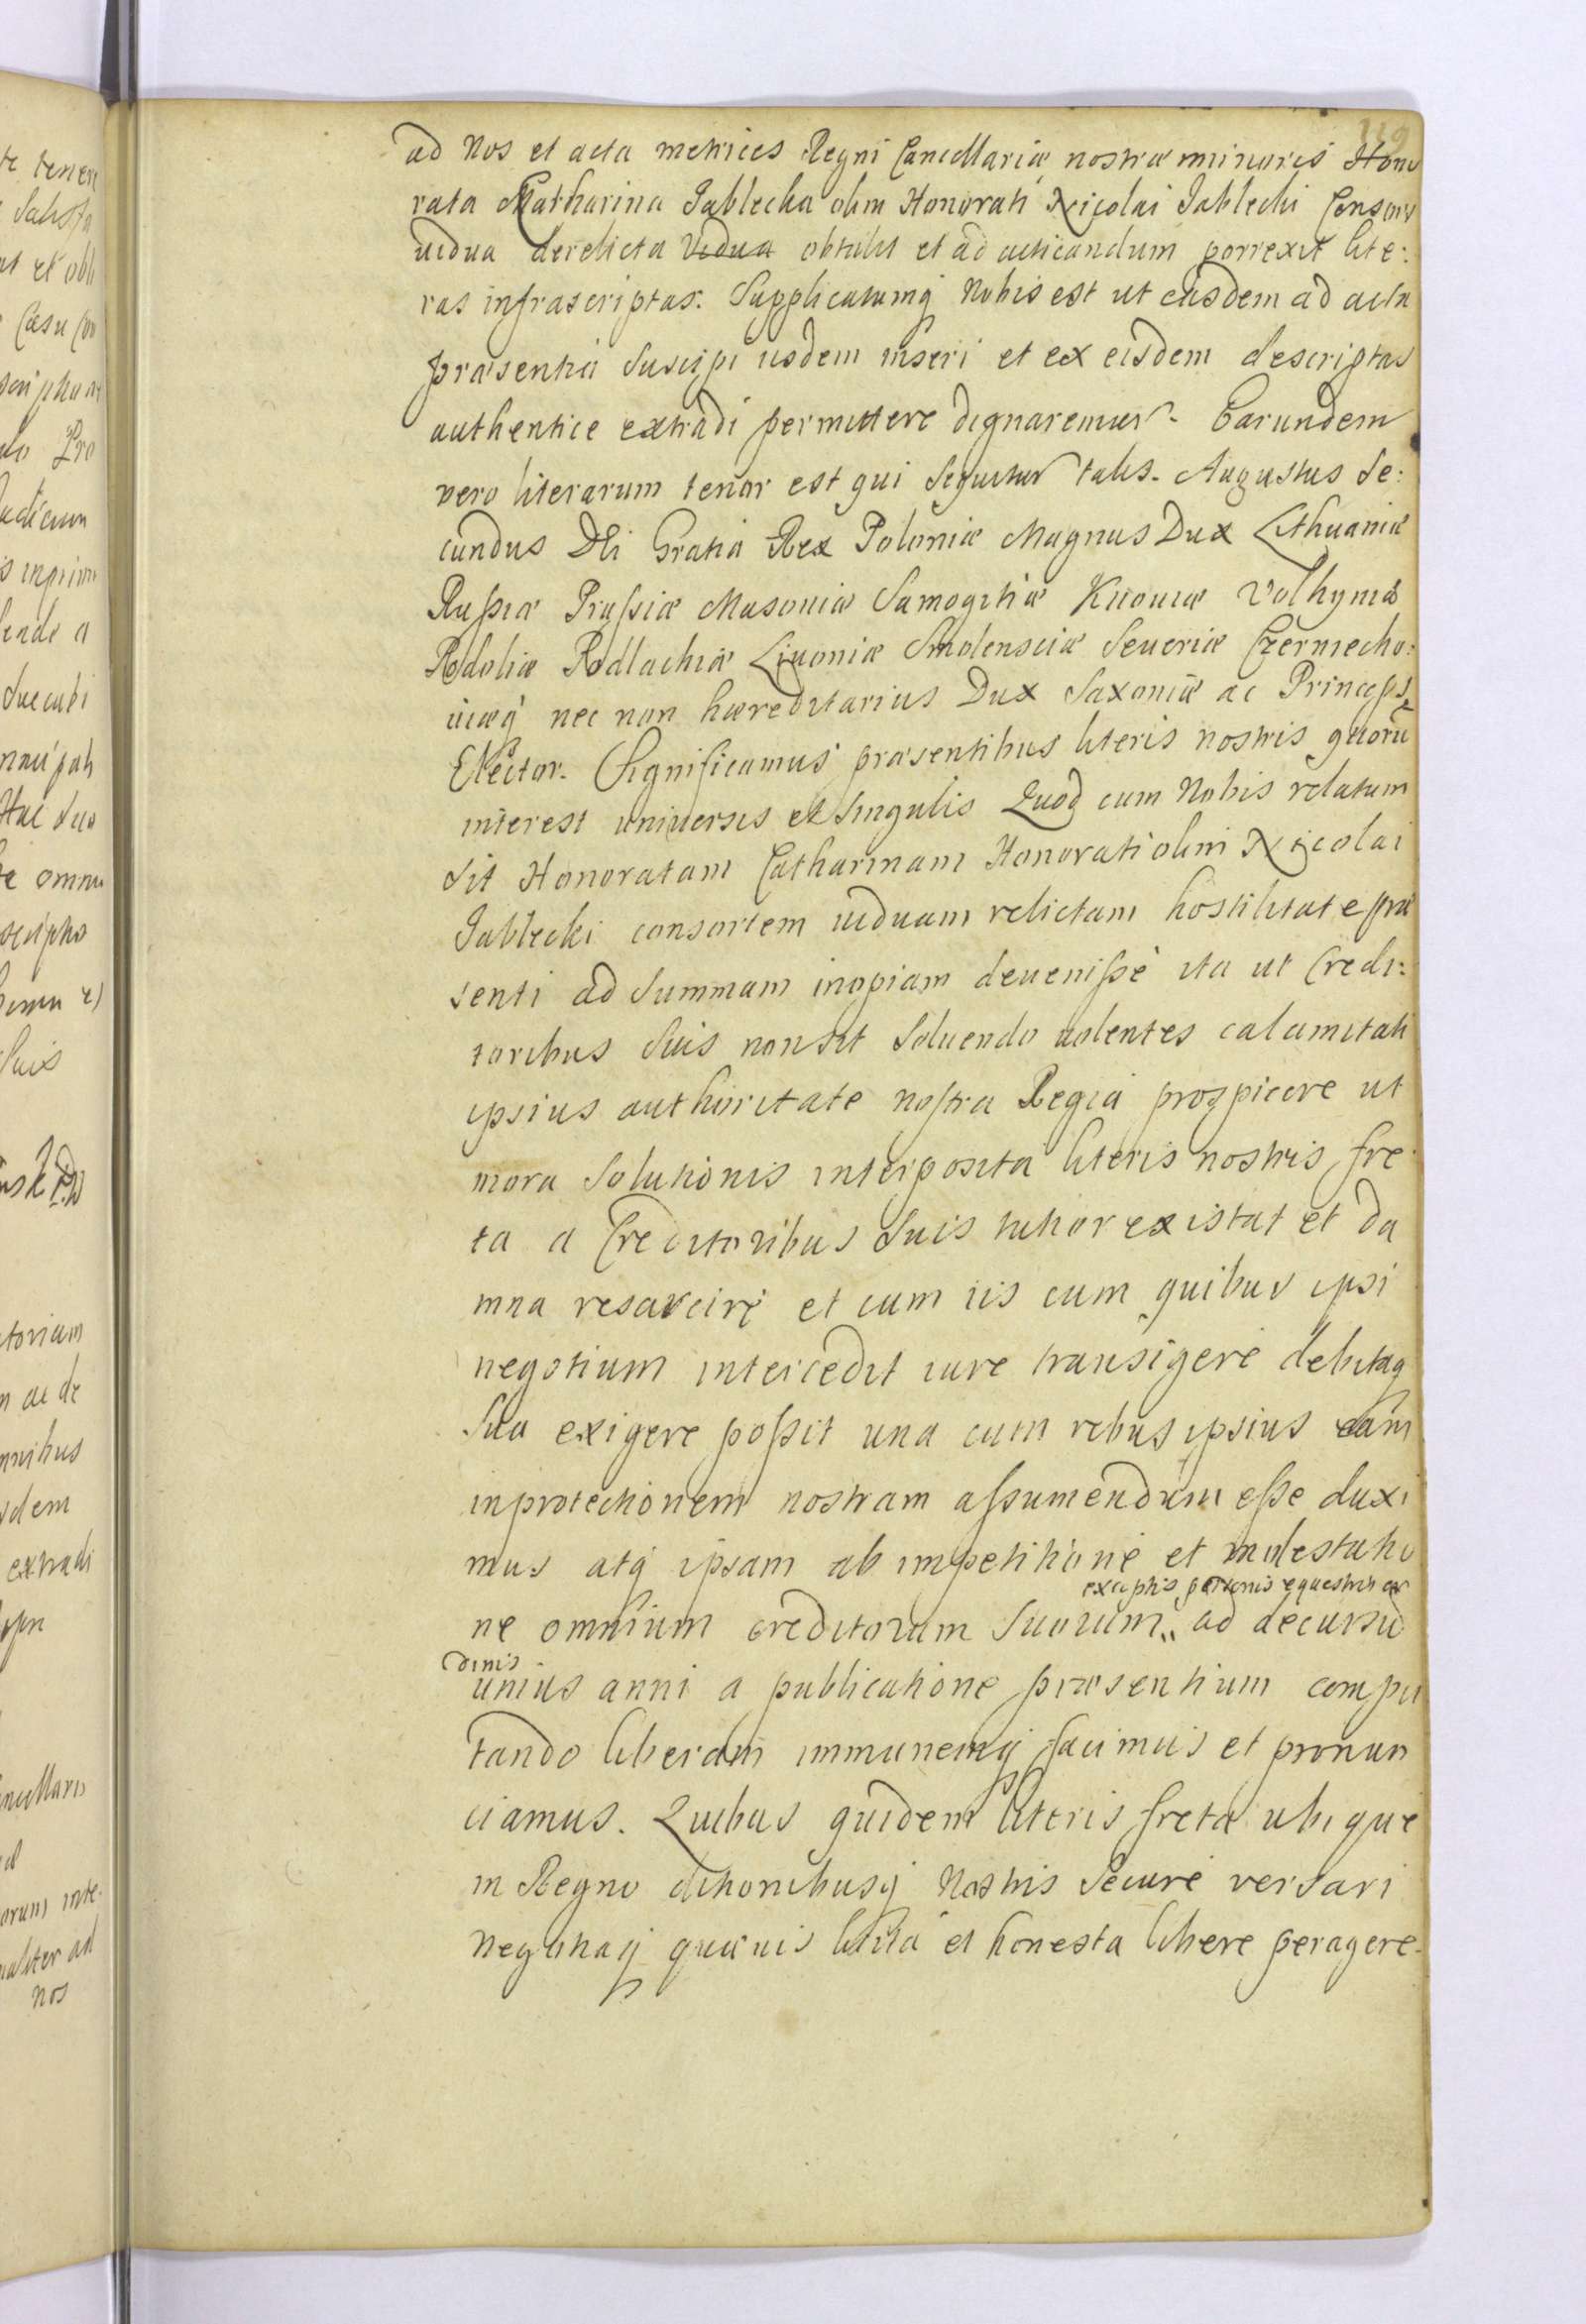 119
ad Nos et acta metrices Regni Cancellariæ nostræ minoris Hono
rata Catharina Jablecka olim Honorati Nicolai Jablecki Consors
uidua derelicta Vidua obtulit et ad acticandum porrexit lite:
ras infrascriptas. Supplicatumq Nobis est ut easdem ad acta
præsentia suscipi iisdem inseri et ex eisdem descriptas
authentice extradi permittere dignaremur. Earundem
vero literarum tenor est qui sequitur talis. Augustus Se:
cundus Dei Gratia Rex Poloniæ Magnus Dux Lithuaniæ
Rußiæ Prußiæ Masouiæ Samogitiæ Kiiouiæ Volhyniæ
Podoliæ Podlachiæ Liuoniæ Smolensciæ Seueriæ Czerniecho:
uiæq nec non hæreditarius Dux Saxoniæ ac Princeps
Elector. Significamus præsentibus literis nostris quorũ
interest uniuersis et Singulis Quod cum Nobis relatum
sit Honoratam Catharinam Honorati olim Nicolai
Jablecki consortem uiduam relictam hostilitate præ
senti ad Summam inopiam deuenißè ita ut Credi:
toribus Suis non sit Soluendo uolentes calamitati
ipsius authoritate nostra Regia prospicere ut
mora Solutionis interposita literis nostris fre
ta a Creditoribus Suis tutior existat et da
mna resarcire et cum iis cum quibus ipsi
negotium intercedit iure transigere debitaq
sua exigere poßit una cum rebus ipsius eam
inprotectionem nostram aßumendum eße duxi
mus atq ipsam ab impetitione et molestatio
exceptis personis equestris or
ne omnium creditorum Suorum ad decursũ
dinis
unius anni a publicatione præsentium compu
tando liberam immunemq facimus et pronun
ciamus. Quibus quidem literis freta ubique
in Regno ditionibusq Nostris Secure versari
negotiaq quæuis licita et honesta libere peragere